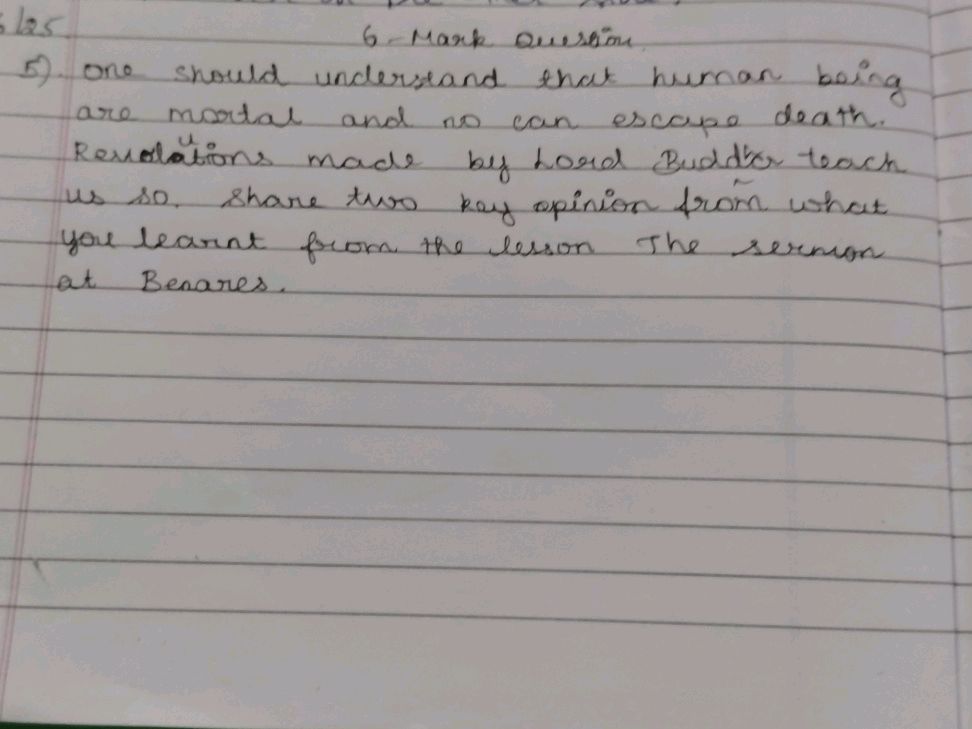 /25
6-Mark Question
5). one should understand that human being
are mortal and no can escape death.
Revolutions made by Lord Buddha teach
us so. Share two key opinion from what
you learnt from the lesson The sermon
at Benares.